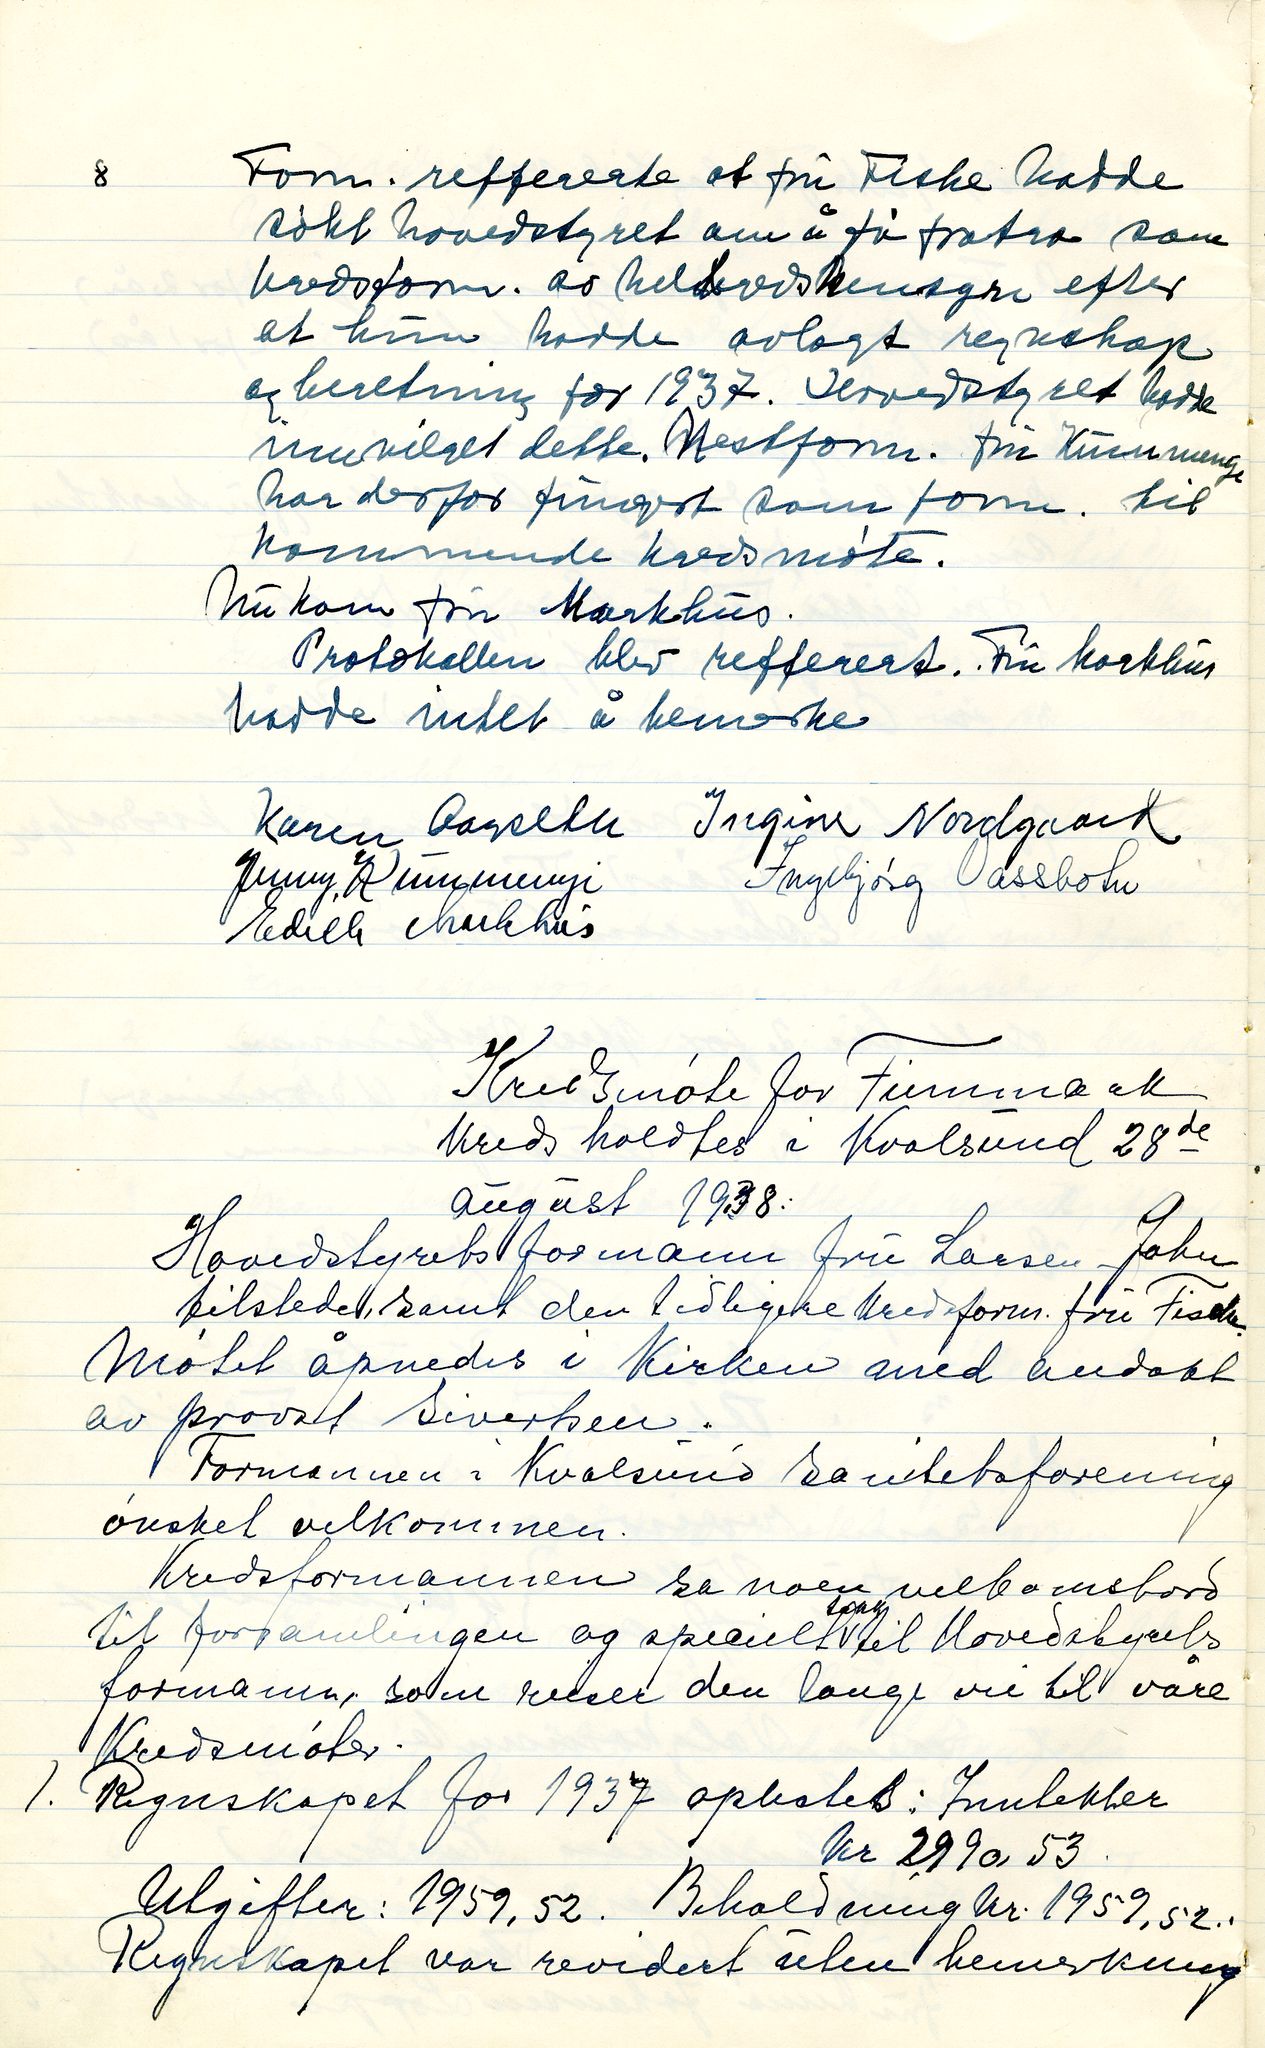 8 Form. reffererte at frü Fiske hadde
søkt hovedstyret om å få fratre som
kredsform. av helsedshensyn efter
at hün hadde avlagt regnskap
og beretning for 1937. Hovedstyret hadde
innvilget dette. Nestform. frü Kümmenje
har derfor füngert som form. til
kommende kredsmøte.
Nü kom frü Markhüs.
Protokollen blev refferert. Frü Markhüs
hadde intet å bemerke
Karen Aagseth Ingine Nordgaard
Jenny Kümmenje Ingebjørg Vassbotn
Edith Markhüs
Kredsmøte for Finnmark
Kreds holdtes i Kvalsünd 28de
aügüst 1938:
Hovedstyrets formann frü Larsen-Jahn
tilstede, samt den tidligere kredsform. frü Fiske.
Møtet åpnedes i Kirken med andakt
av provst Sivertsen.
Formannen i Kvalsünd sanitetsforening
ønsket velkommen.
Kredsformannen sa noen velkomstord
til forsamlingen og specielt takk til Hovedstyrets
formann, som reiser den lange vei til våre
Kredsmøter.
1. Regnskapet for 1937 oplestes: Inntekter
kr 2990,53.
Utgifter: 1959,52. Beholdning kr. 1959,52.
Regnskapet var revidert üten bemerkning